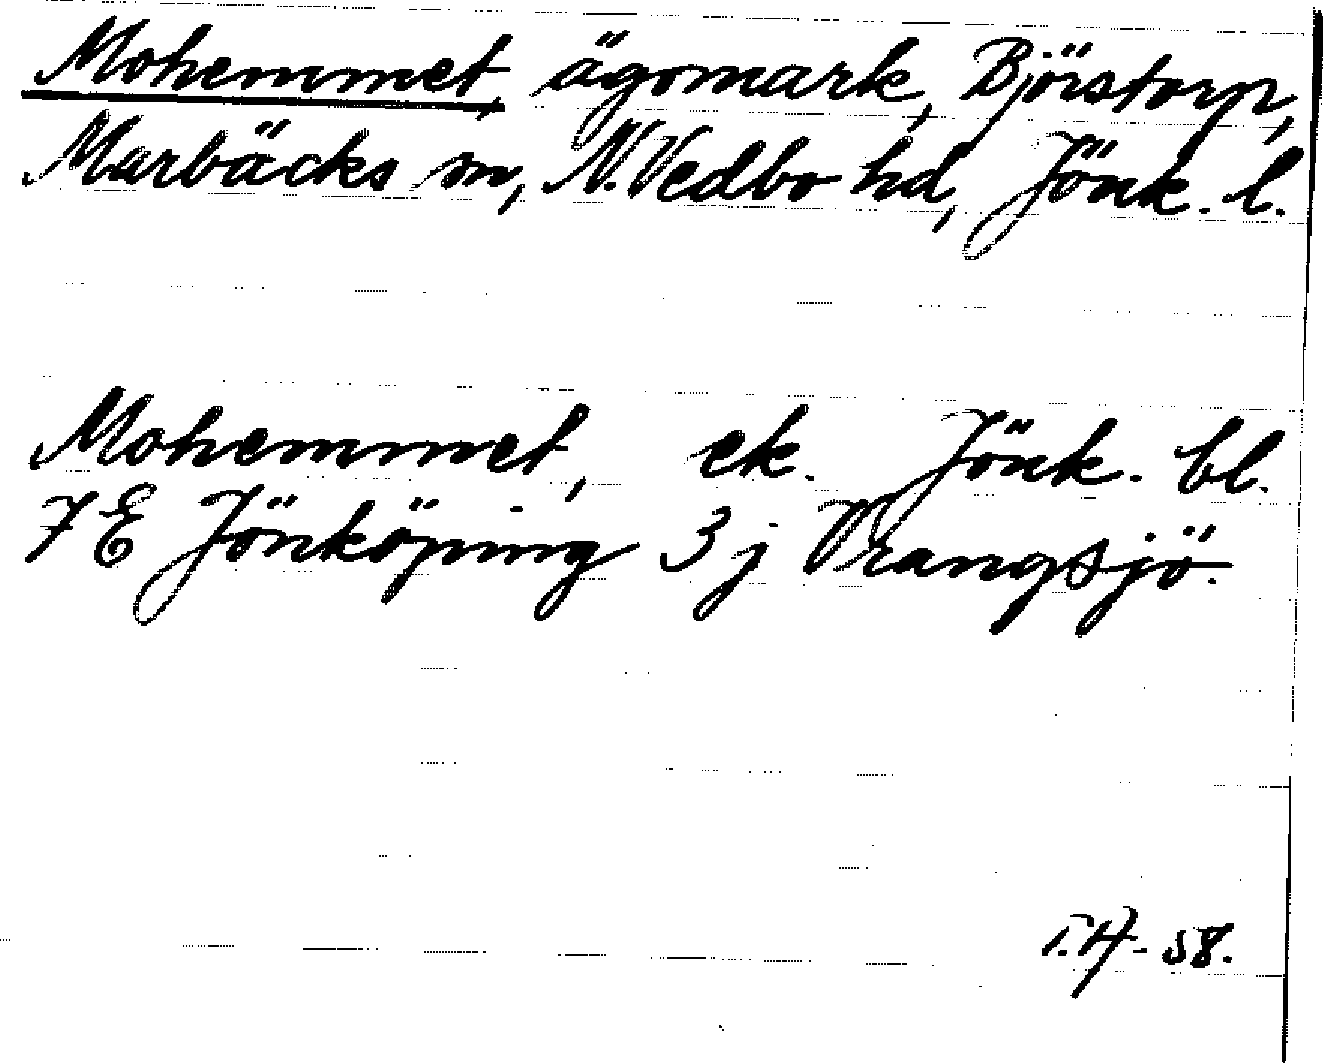 Mohemmet, ägomark, Björstorp,
Marbäcks sn, N. Vedbo hd, Jönk. l.
Mohemmet, ek. Jönk. bl.
7 E Jönköping 3 j Vrangsjö.
-58.